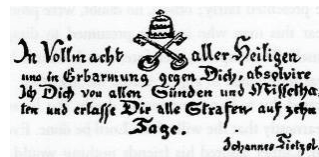 In Vollmacht aller Heiligen
und in Erbarmung gegen Dich, absolvire
Ich Dich von allen Sünden und Misstha-
ten und erlasse Dir alle Strafen auf zehn
Tage.
Johannes Tietzel.